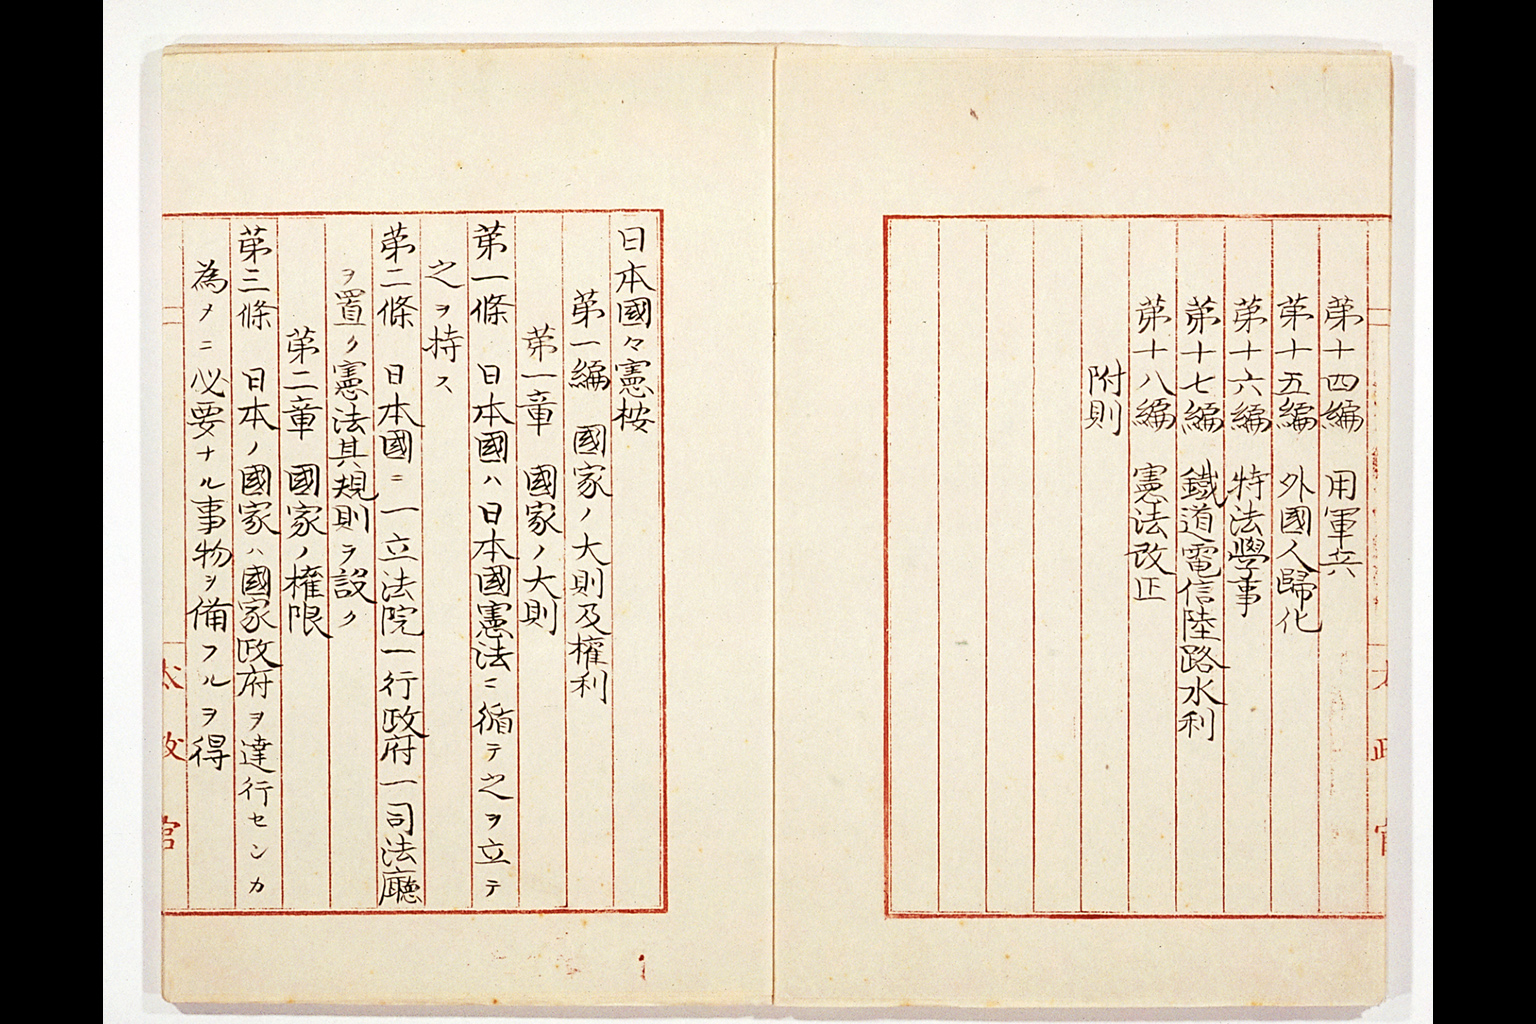 第十四編 用軍兵
第十五編 外國人歸化
第十六編 特法學事
第十七編 鐵道電信陸路水利
第十八編 憲法改正
附則
日本國々憲桉
第一編 國家ノ大則及權利
第一章 國家ノ大則
第一條 日本國ハ日本國憲法ニ循テ之ヲ立テ
之ヲ持ス
第二條 日本國ニ一立法院一行政府一司法廳
ヲ置ク憲法其規則ヲ設ク
第二章 國家ノ權限
第三條 日本ノ國家ハ國家政府ヲ達行センカ
為メニ必要ナル事物ヲ備フルヲ得
太政官